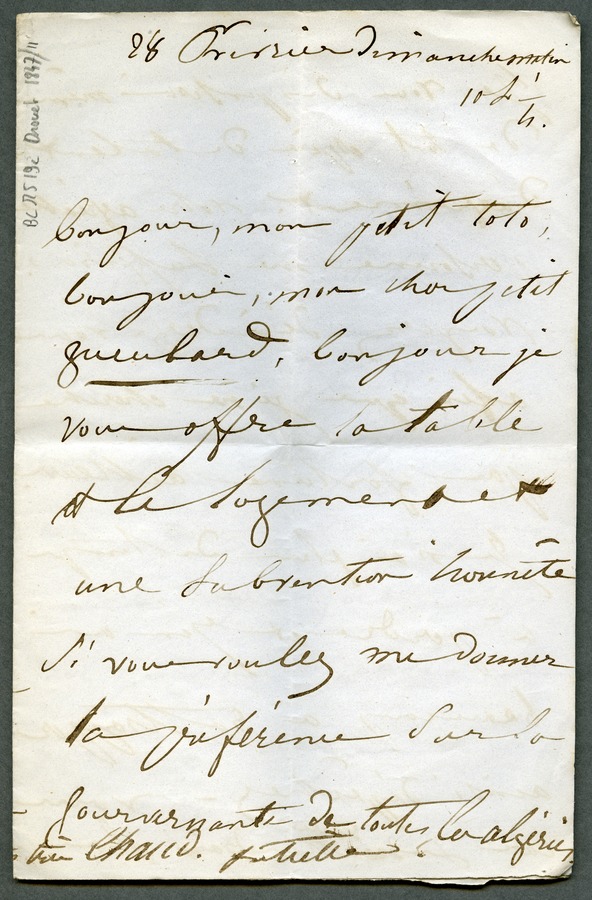 28 Février Dimanche matin
10 h. ¼
BC JJ5 192 Drouet 1847/11
bonjour, mon petit toto,
bonjour, mon cher petit
gueulard, bonjour je
vous offre la table
et le logement et
une subvention honnête
si vous voulez me donner
la préférence sur la
gouvernante de toutes les algéries
Chaud.